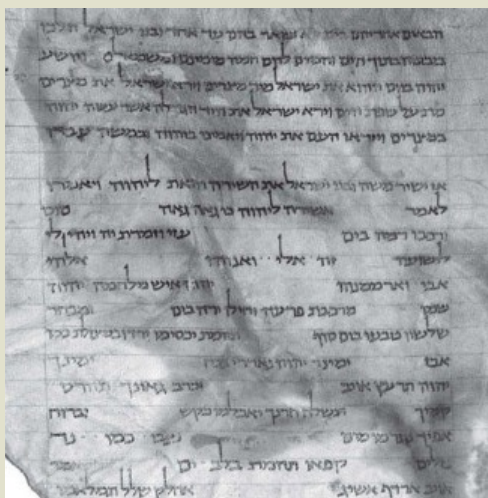 הבאים אחריהם בים לא נשאר בהם עד אחד ובני ישראל הלכו
ביבשה בתוך הים והמים להם חמה מימינם ומשמאלם ויושע
יהוה ביום ההוא את ישראל מיד מצרים וירא ישראל את מצרים
מת על שפת הים וירא ישראל את היד הגדלה אשר עשה יהוה
במצרים וייראו העם את יהוה ויאמינו ביהוה ובמשה עבדו
אז ישיר משה ובני ישראל את השירה הזאת ליהוה ויאמרו
לאמר אשירה ליהוה כי גאה גאה סוס
ורכבו רמה בים עזי וזמרת יה ויהי לי
לישועה זה אלי ואנוהו אלהי
אבי וארממנהו יהוה איש מלחמה יהוה
שמו מרכבת פרעה וחילו ירה בים ומבחר
שלישו טבעו בים סוף תהמת יכסימו ירדו במצולת כמו
אבן ימינך יהוה נאדרי בכח ימינך
יהוה תרעץ אויב וברב גאונך תהרס
קמיך תשלח חרנך יאכלמו כקש וברוח
אפיך נערמו מים נצבו כמו נד
נזלים קפאו תהמת בלב ים אמר
אויב ארדף אשיג אחלק שלל תמלאמו